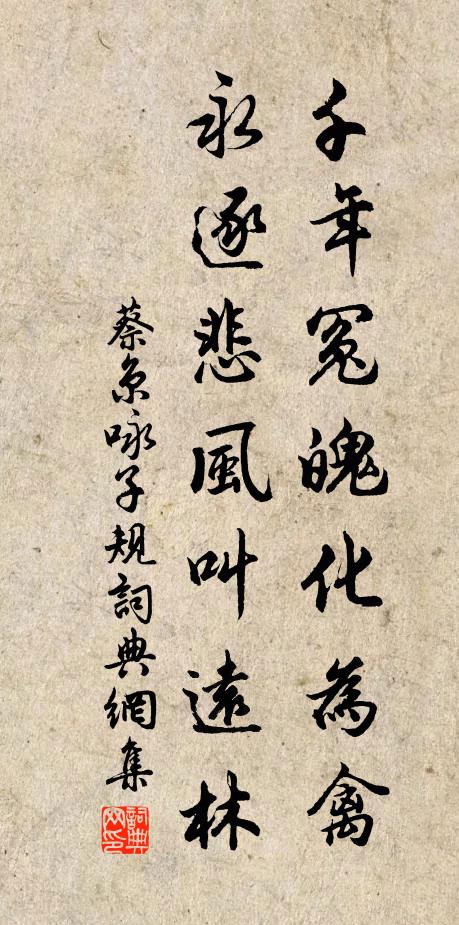 千年冤魄化為禽
永逐悲風叫遠林
蔡京咏子規詞典網集
詞典网印